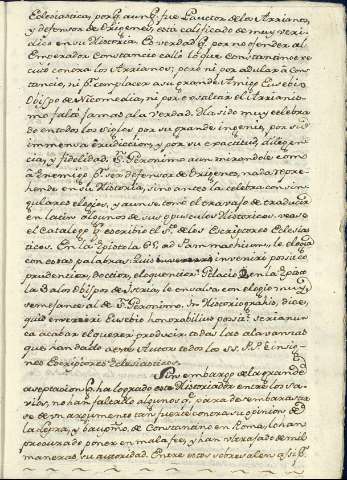 Eclesiastica, porq. aunq. fue Fauctor de los Arrianos,
y defensor de Origenes, esta calificado de muy veri-
dico en su Historia. Es verdad q. por no ofender al
Emperador Constancio calló lo que Constantino re-
cutó contra los Arrianos; pero ni por adular à Cons-
tancio, ni p.r complacer a su grande Amigo Eusebio
Obispo de Nicomedia, ni por exaltar el Arrianis-
mo faltó jamas a la Verdad. Ha sido muy celebra-
do en todos los siglos por su grande ingenio, por su
immensa erudiccion, y por su exactitud, diligen-
cia, y fidelidad. S.n Geronimo aun mirandole com-
o Enemigo p.r ser defensor de Origenes, nada repre-
hende en su Historia, sino antes la celebra con sin-
gulares elogios, y aun se tomó el travajo de traducir
en latin algunos de sus opusculos Historicos. vease
el Catalogo q. escribio el S.to de los Escriptores Eclesias-
ticos. En la Epistola 65. ad Pammachium, le elogia
con estas palabras: Quis inveniri possit eo
prudencior, doctior, eloquentior. Pelacio 2. en la Episto-
la 3. a los Obispos de Istria, le ensalsa con elogio muy
semejante al de S.n Geronimo. In Historiographis, dice,
quid inveniri Eusebio honorabilius potest. seria nun-
ca acabar el querer producir todas las alavansas
que han dado a este Autor todos los SS. PP. è insig-
nes Escriptores Eclesiasticos.
Sin embargo de la grande
aseptacion q. ha logrado este Historiador entre los Sa-
vios, no han faltado algunos q. para desembarasar-
se de un argumento tan fuerte contra su opinion de
la Lepra, y bauptmo. de Constantino en Roma, lo han
procurado poner en mala fee, y han versado de mil
maneras su autoridad. Entre estos sobresalen a si q.